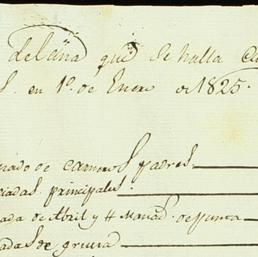 del año que se halla
en 1º de Enero de 1825.
nado de carneros padres
ciadas principales.
ada de Abril y 4 Manad. de punta
adas de gruesa